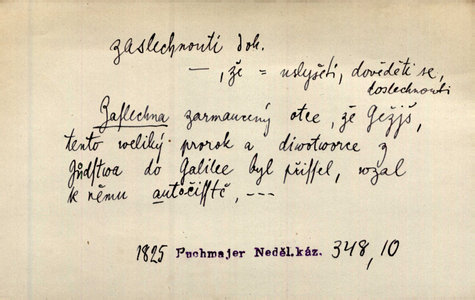 zaslechnouti dok.
—, že = uslyšeti, dověděti se,
doslechnouti
Zaslechna zarmaucený otec, že Gežjš,
tento weliký prorok a diwotworce z
Gůdstwa do Galilee byl přissel, wzal
k němu autočisstě, ---
1825 Puchmajer Neděl.káz. 348,10